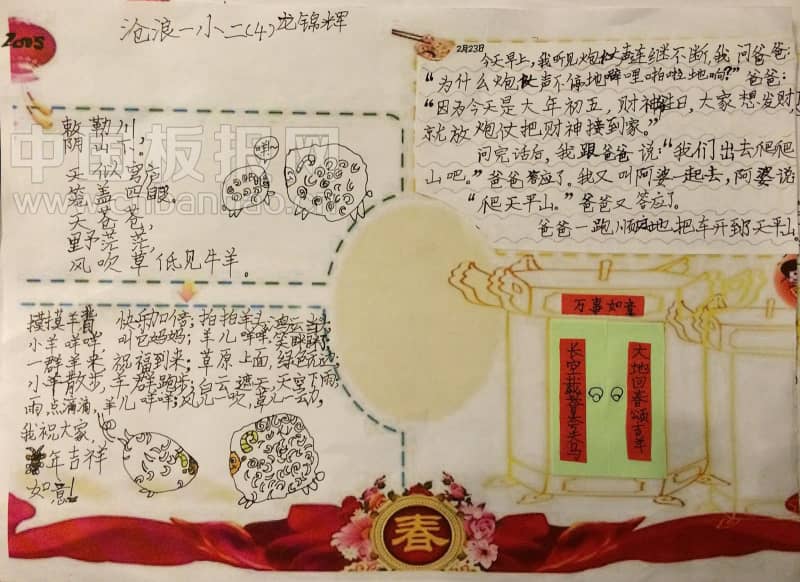 沧浪一小二(4)龙锦辉
敕勒川,
阴山下,
天似穹庐,
盖四野。
天苍苍,
野茫茫,
风吹草低见牛羊。
咩~
2月23日
今天早上,我听见炮仗声连继不断,我问爸爸:
“为什么炮仗声不停地噼哩啪啦地响?”爸爸:
“因为今天是大年初五,财神生日,大家想发财
就放炮仗把财神接到家。”
问完话后,我跟爸爸说:“我们出去爬爬
山吧。”爸爸答应了。我又叫阿婆一起去,阿婆说
“爬天平山。”爸爸又答应了。
爸爸一路顺风地把车开到了天平山。
摸摸羊背,快乐加倍;拍拍羊头,鸿运当头;
小羊咩咩,叫它妈妈;羊儿咩咩,笑眯眯;
一群羊来,祝福到来;草原上面,绿色无边;
小羊散步,羊群跑步;白云遮天,天空下雨;
雨点滴滴,羊儿咩咩;风儿一吹,草儿一动,
我祝大家,
羊年吉祥
如意!
万事如意
大地回春颂吉年
春
中国板报网